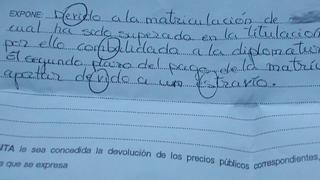 EXPONE: Devido a la matriculación de
cual ha sido superada en la titulación
por ello conbulidada a la diplomatur
El segundo plazo del pago de la matríc
apartar devido a un estravío.
ITA le sea concedida la devolución de los precios públicos correspondientes,
que se expresa